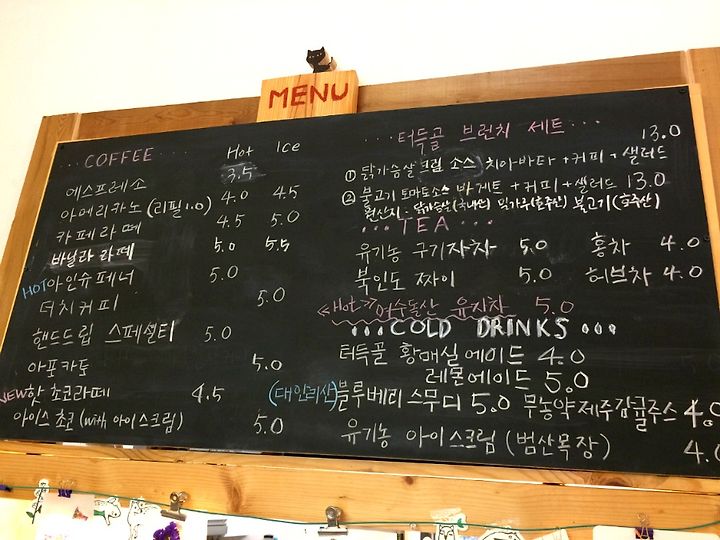 MENU
COFFEE Hot Ice
에스프레소 3.5
아메리카노 (리필 1.0) 4.0 4.5
카페라떼 4.5 5.0
바닐라라떼 5.0 5.5
HOT 아인슈페너 5.0
더치커피 5.0
핸드드립 스페셜티 5.0
아포카토 5.0
NEW 핫 초코라떼 4.5
아이스 초코 (with 아이스크림) 5.0
터득골 브런치 세트
① 닭가슴살 크림 소스 치아바타 + 커피 + 샐러드 13.0
② 불고기 토마토소스 바게트 + 커피 + 샐러드 13.0
원산지 : 닭가슴살 (국내산) 밀가루 (호주산) 불고기 (호주산)
TEA
유기농 구기자차 5.0 홍차 4.0
북인도 짜이 5.0 허브차 4.0
<Hot> 여수돌산 유자차 5.0
COLD DRINKS
터득골 황매실에이드 4.0
레몬에이드 5.0
블루베리 스무디 5.0 무농약제주감귤주스 4.0
유기농 아이스크림 (범산목장) 4.0